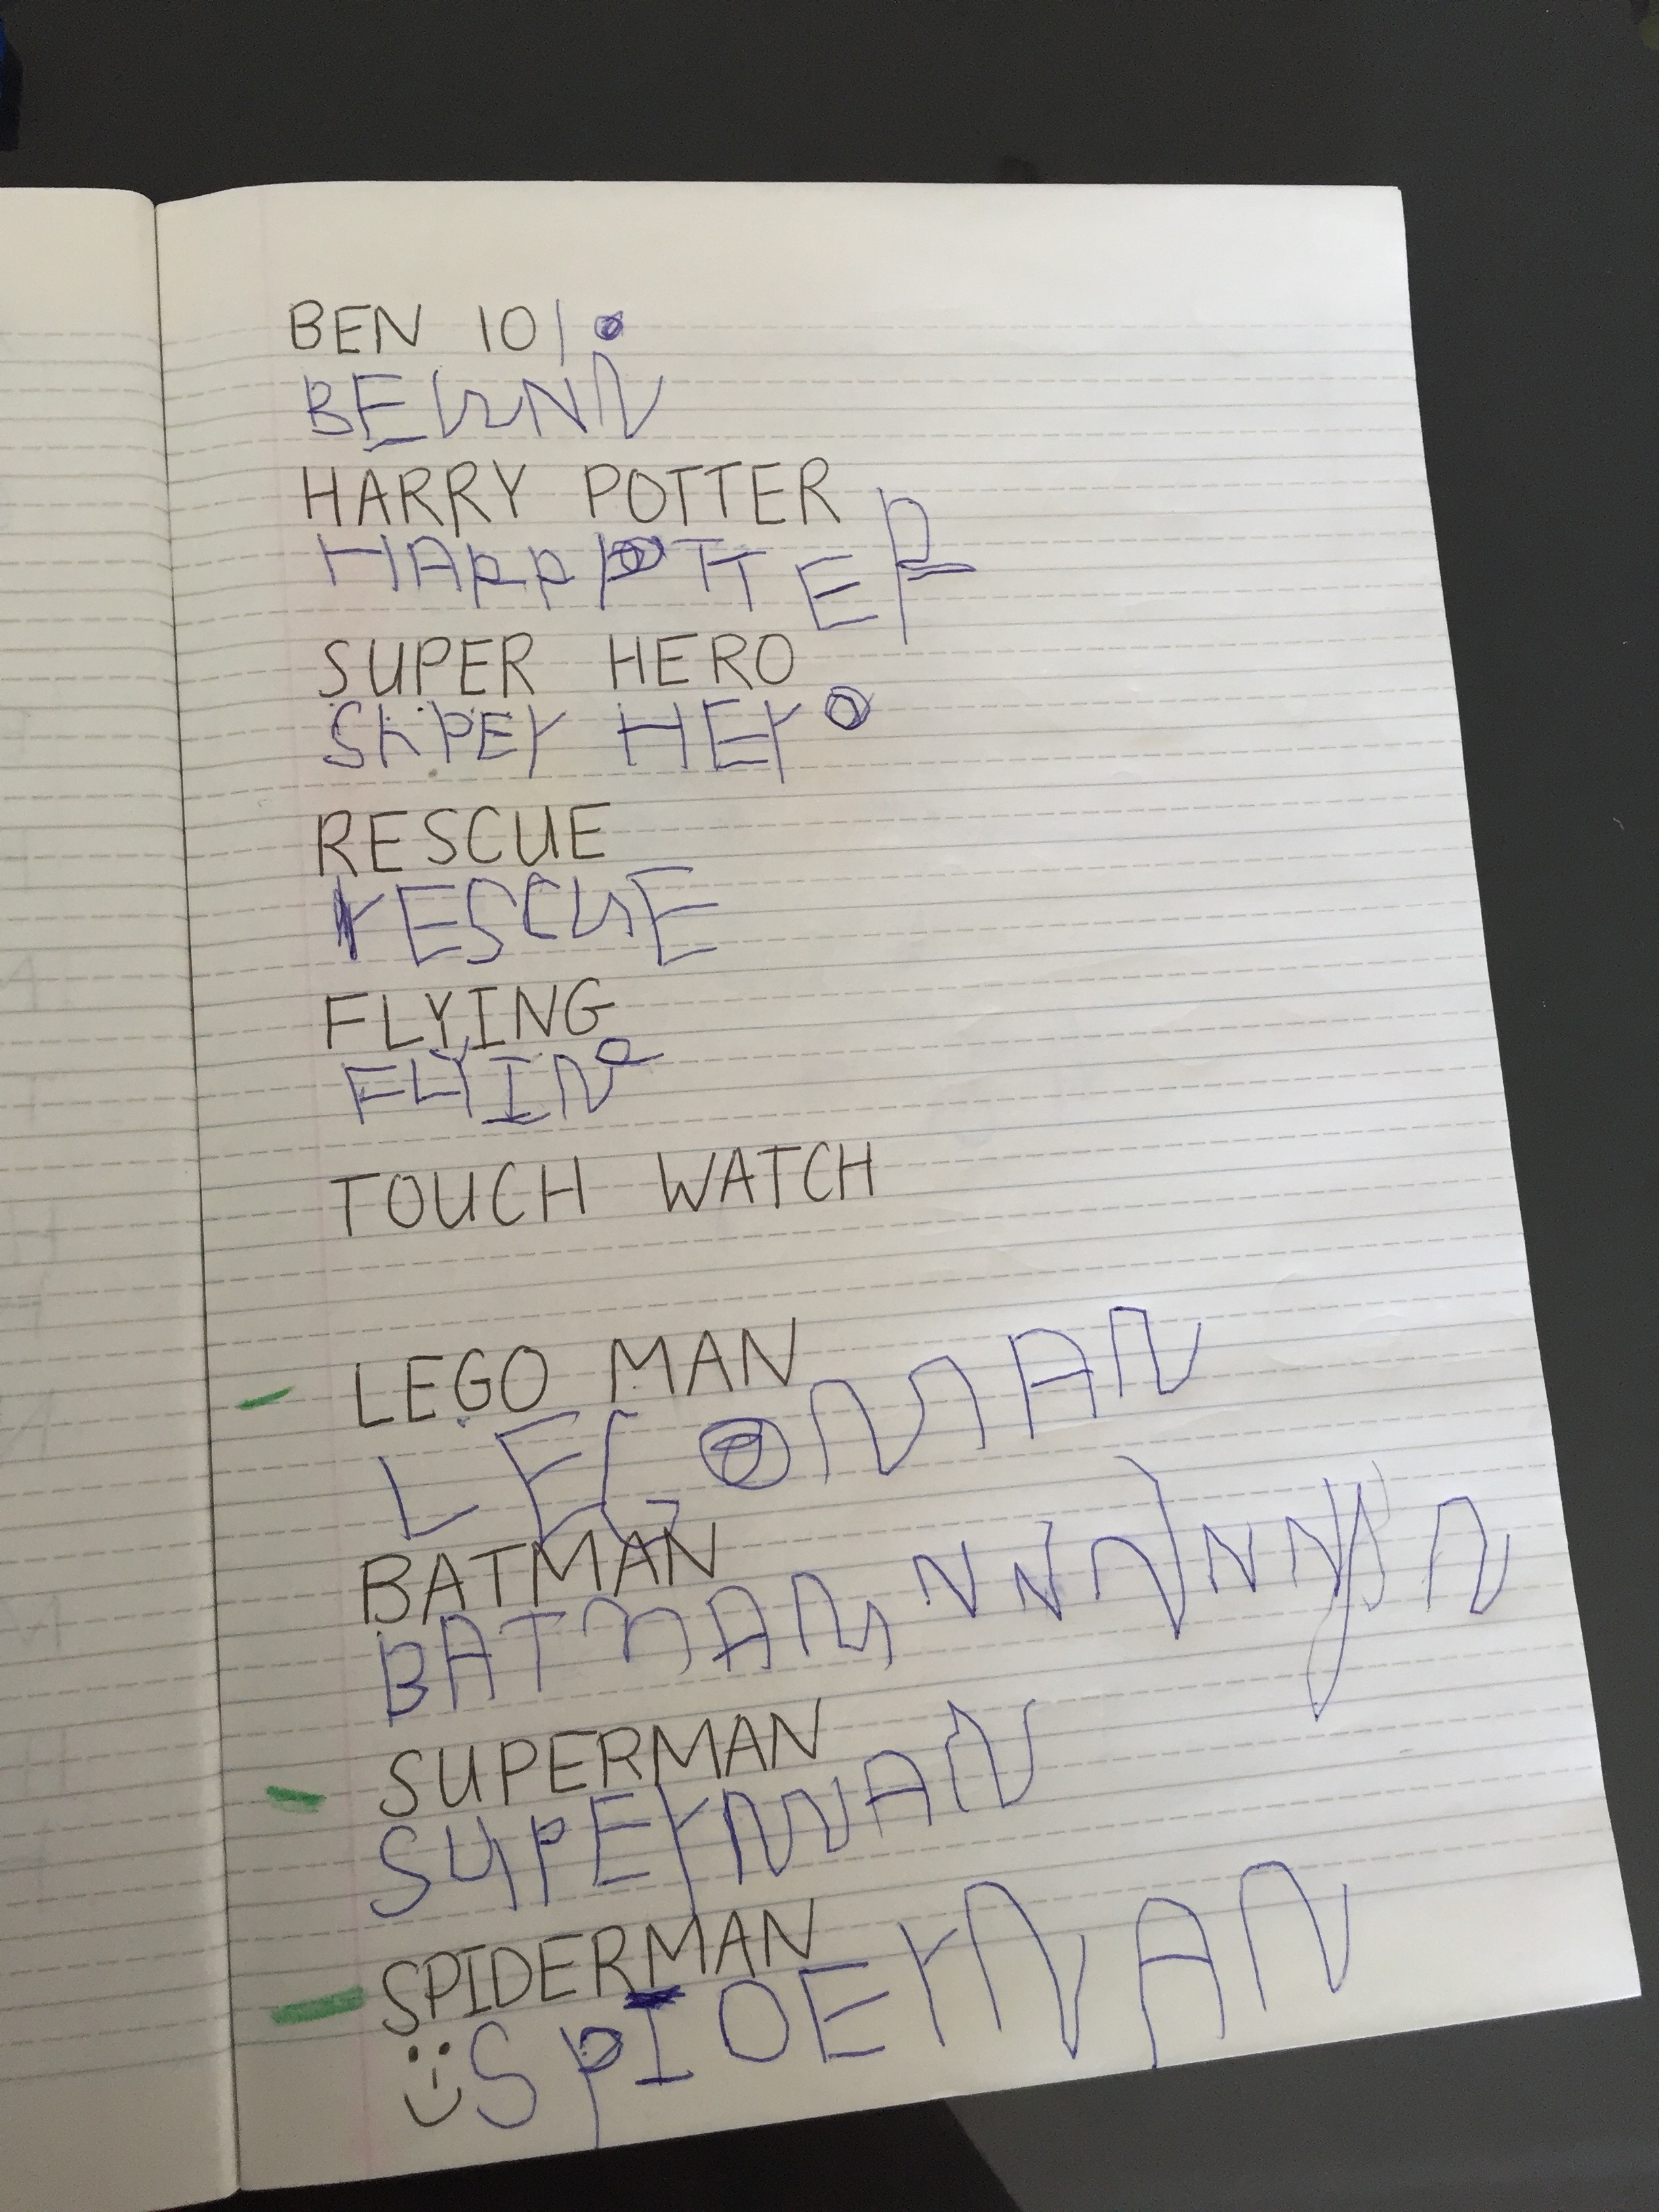 BEN 10
HARRY POTTER
HAPPPOTTER
SUPER HERO
SUPEr HErO
RESCUE
rESCUE
FLYING
FLYIN
TOUCH WATCH
LEGO MAN
LEGOMAN
BATMAN
BATMAN
SUPERMAN
SUPErMAN
SPIDERMAN
SPIOErMAN